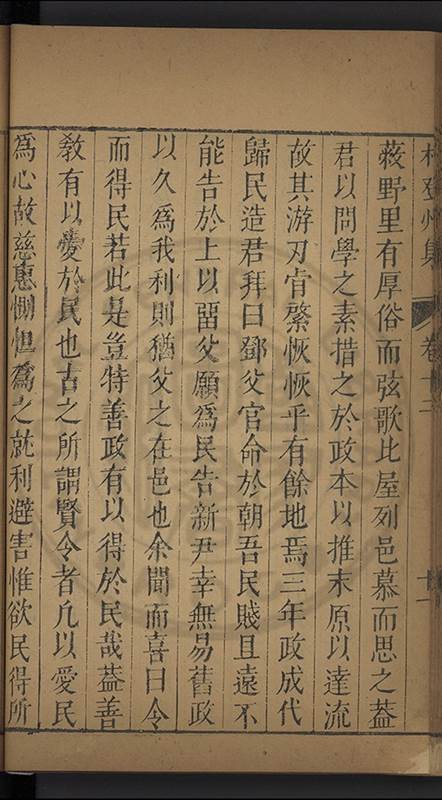 林登州集 卷十二 十一
蔱野里有厚俗而弦歌比屋列邑慕而思之葢
君以問學之素措之於政本以推末原以達流
故其游刃肯綮恢恢乎有餘地焉三年政成代
歸民造君拜曰鄧父官命於朝吾民賤且遠不
能告於上以畱父願為民告新尹幸無易舊政
以久為我利則猶父之在邑也余聞而喜曰令
而得民若此是豈特善政有以得於民哉葢善
教有以愛於民也古之所謂賢令者凡以愛民
為心故慈惠惻怛為之就利避害惟欲民得所